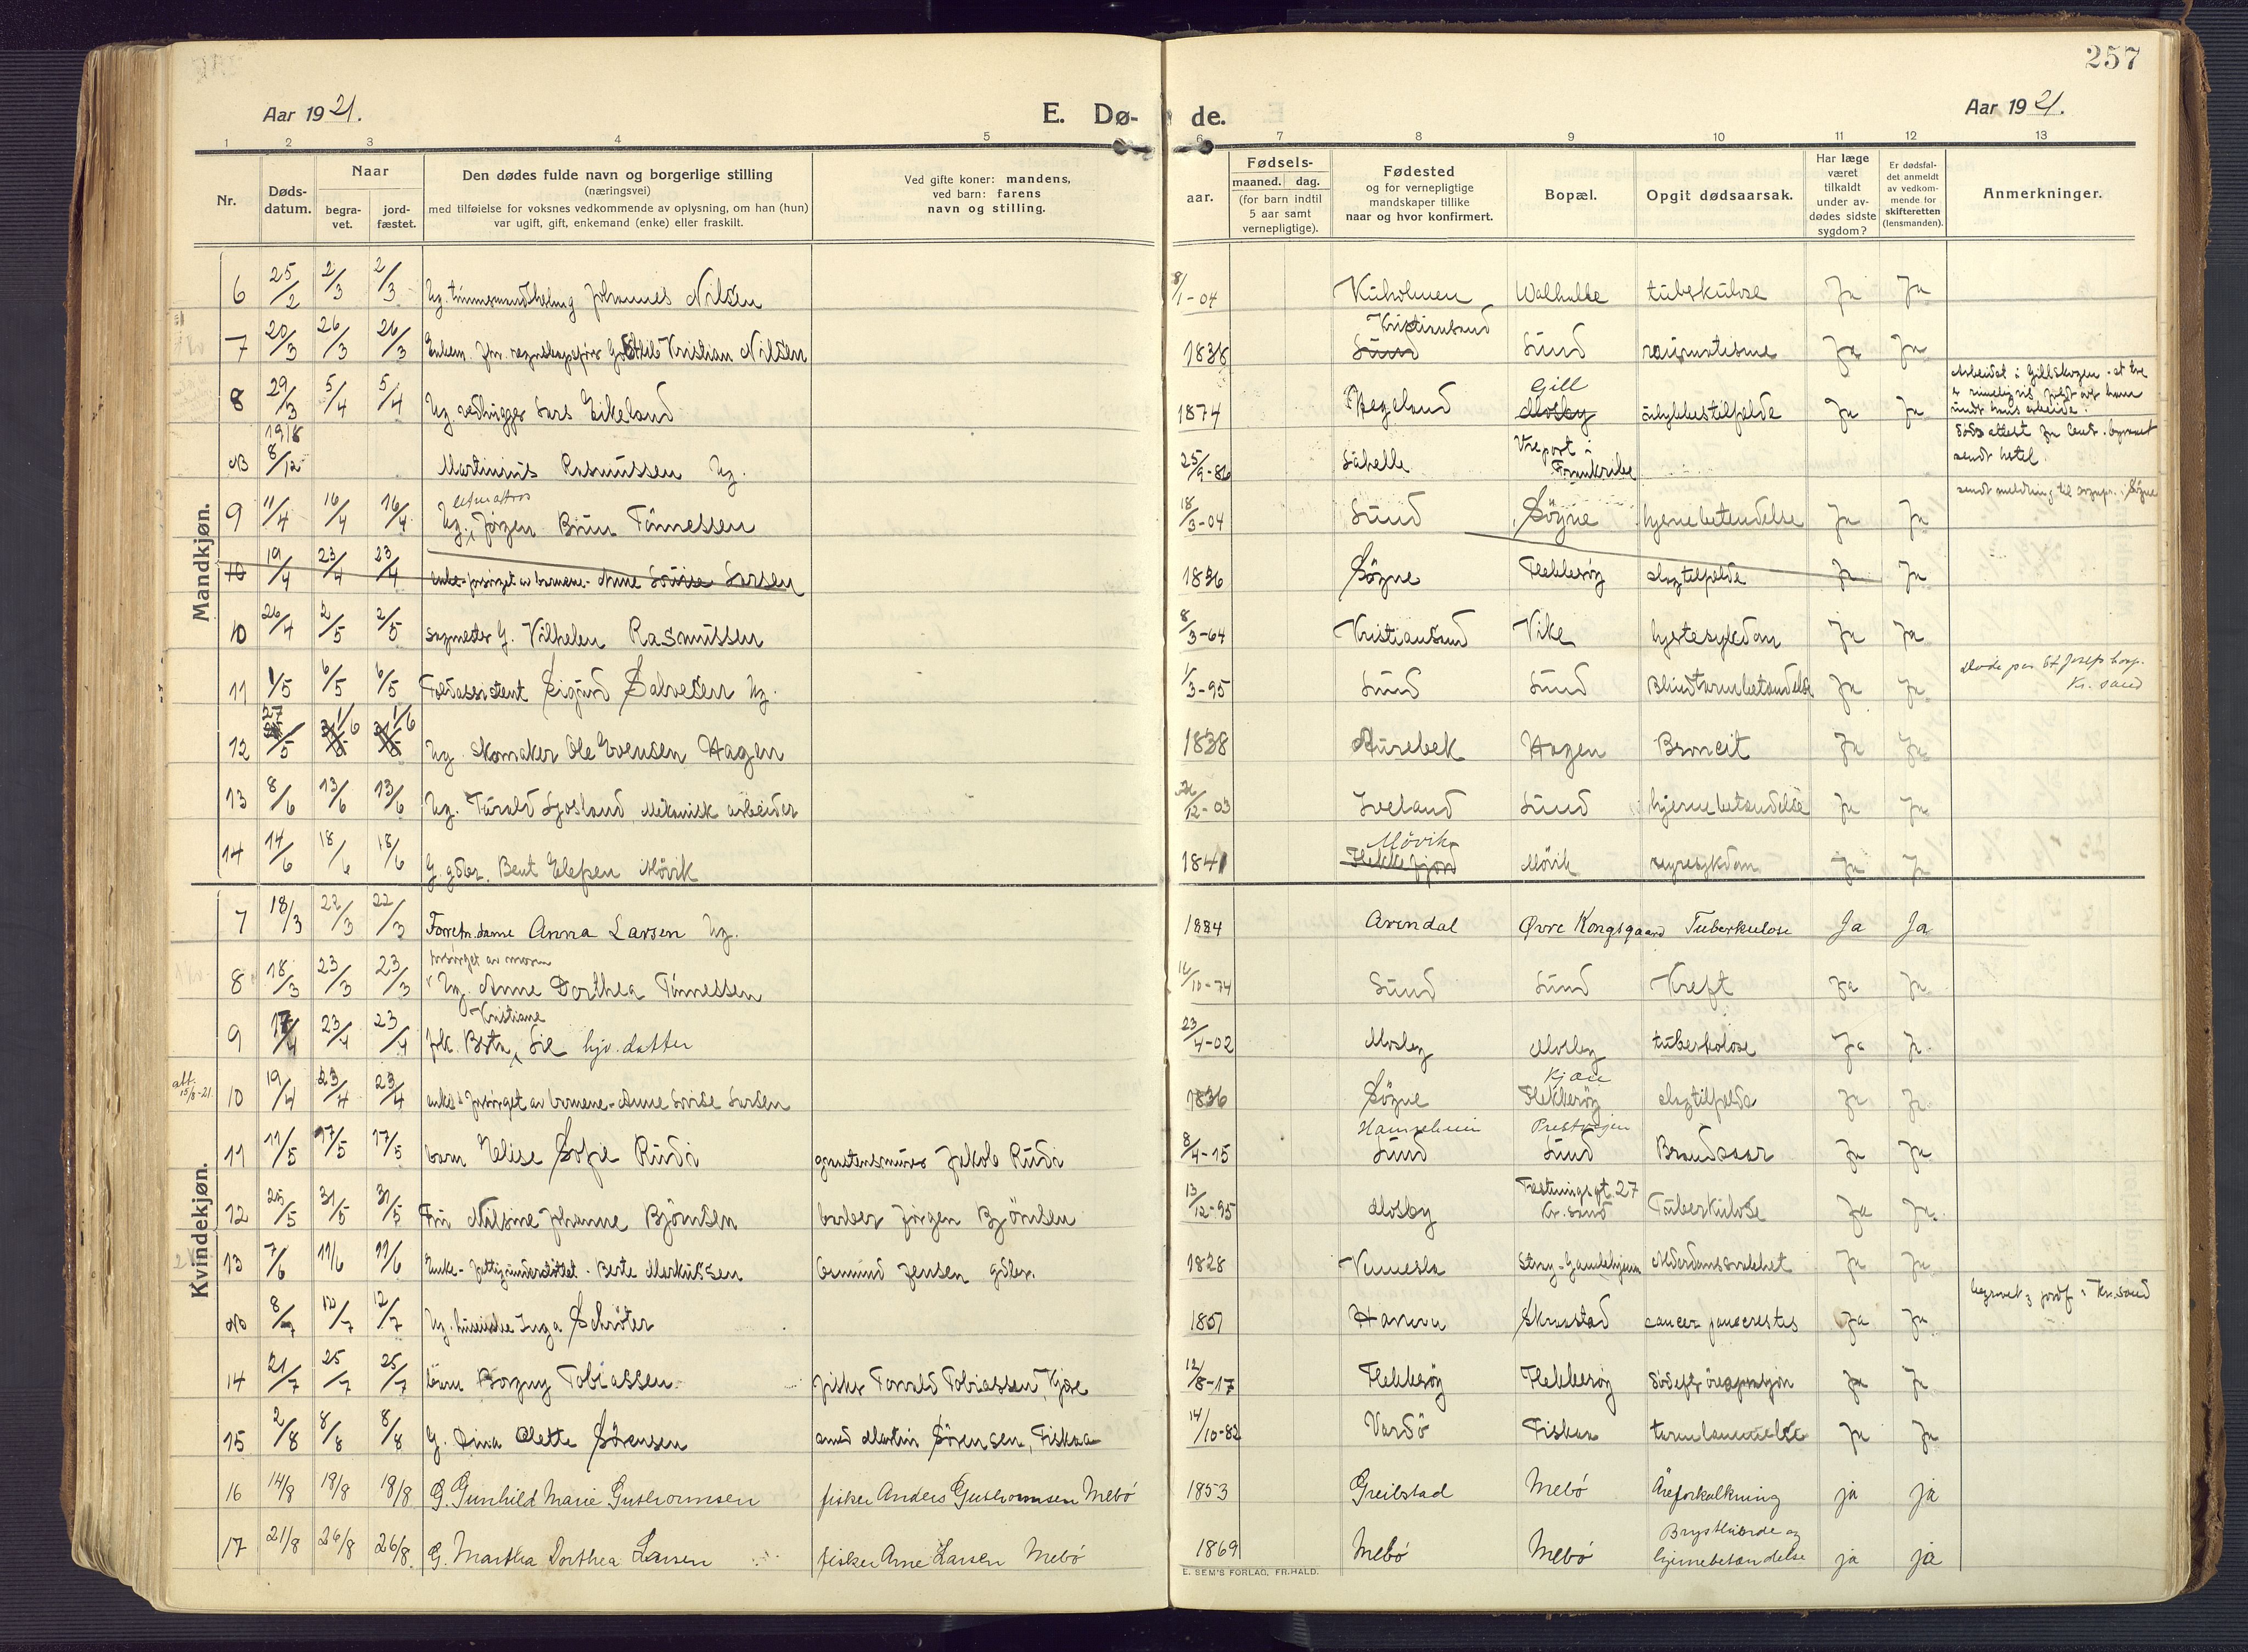 257
Aar 1921.
E. Dø-
de.
Aar 1921.
1 2 3 4 5 6 7 8 9 10 11 12 13
Nr.
Døds-
datum.
Naar
begra-
vet.
jord-
fæstet.
Den dødes fulde navn og borgerlige stilling
(næringsvei)
med tilføielse for voksnes vedkommende av oplysning, om han (hun)
var ugift, gift, enkemand (enke) eller fraskilt.
Ved gifte koner: mandens,
ved barn: farens
navn og stilling.
aar.
Fødsels-
maaned. dag.
(for barn indtil
5 aar samt
vernepligtige).
Fødested
og for vernepligtige
mandskaper tillike
naar og hvor konfirmert.
Bopæl.
Opgit dødsaarsak.
Har læge
været
tilkaldt
under av-
dødes sidste
sygdom?
Er dødsfal-
det anmeldt
av vedkom-
mende for
skifteretten
(lensmanden).
Anmerkninger.
Mandkjøn.
6 25/2 2/3 2/3 Ug. Johannes Nilsen 8/1-04 Kuholmen Walhalla tuberkulose Ja Ja
Kristiansand
7 20/3 26/3 26/3 Enkem. Kristian Nilsen 1838 Sund Sund Ja Ja
Gill
8 29/3 5/4 5/4 Ug vedhugger Lars Eikeland 1874 Mosby ulykkestilfelde Ja Ja
1918
NB 8/12 Martinius Rasmussen Ug. 25/9-86 Frankrike
9 11/4 16/4 16/4 Ug. Jørgen Brun Tønnessen 18/3-04 Sund Søgne hjernebetendelse Ja Ja
10 19/4 23/4 23/4 enke-forsørget av barnene-Anne Lovise Larsen 1836 Søgne Flekkerøy slagtilfelde Ja Ja
10 26/4 2/5 2/5 G. Vilhelm Rasmussen 8/3-64 Kristiansund Vike Ja Ja
11 1/5 6/5 6/5 Toldassistent Sigurd Salvesen Ug. 1/3-95 Sund Sund Blindtarmbetendelse Ja Ja Døde paa St Josefs hosp. Kr. sand
12 27/5 1/6 1/6 Ug. Skomaker Ole Evensen Hagen 1838 Aurebek Hagen Ja Ja
13 8/6 13/6 13/6 Ug. Ljosland, Mekanisk arbeider 12-03 Iveland Sund hjernebetendelse Ja Ja
Møvik
14 14/6 18/6 18/6 G. gdbr. Bent Elefsen Møvik 1841 Flekkefjord Møvik nyresykdom Ja Ja
Kvindekjøn.
7 18/3 22/3 22/3 Forretn.dame Anna Larsen Ug. 1884 Arendal Øvre Kongsgaard Tuberkulose Ja Ja
forsørget av moren
8 18/3 23/3 23/3 Ug. Anne Dorthea Tønnessen 10-74 Sund Sund Kreft Ja Ja
Kristiane
9 17/4 23/4 23/4 Lie hjv. datter 23/4-02 Mosby Mosby tuberkolose Ja Ja
Kjære
att. 15/8-21 10 19/4 23/4 23/4 enke forsørget av barnene-Anne Lovise Larsen 1836 Søgne Flekkerøy slagtilfelde Ja Ja
11 11/5 17/5 17/5 barn Elise Sofie Rudi Jakob Rudi 8/4-15 Sund Sund Brandsaar Ja Ja
Festningsgt. 27
12 25/5 31/5 31/5 Nilsine Johanne Bjørnsen barber Jørgen Bjørnsen 13/12-95 Mosby Kr. sand Tuberkulose Ja Ja
13 7/6 11/6 11/6 Enke-fattigunderstøttet. Berte Markussen Jensen gdbr. 1828 Vennesla Stray-Gamlehjem Alderdomssvakhet Ja Ja
NB 8/7 12/7 12/7 Ug. Inga Schrøter cancer pancreatis Ja Ja begravet i Kr. sand
14 21/7 25/7 25/7 barn Borgny Tobiassen fisker Torvald Tobiassen, Kjære 12/8-17 Flekkerøy Flekkerøy Ja Ja
15 2/8 8/8 8/8 G. Dina Olette Sørensen smed Martin Sørensen, Fiskaa 14/10-82 Vardø Fiskaa Ja Ja
16 14/8 19/8 19/8 G. Gunhild Marie Guthormsen fisker Anders Guthormsen Mebø 1853 Greibstad Mebø Åreforkalkning ja ja
Brysthinde og
17 21/8 26/8 26/8 G. Martha Dorthea Larsen fisker Arne Larsen Mebø 1869 Mebø Mebø hjernebetændelse ja ja
E. SEM'S FORLAG, FR.HALD.